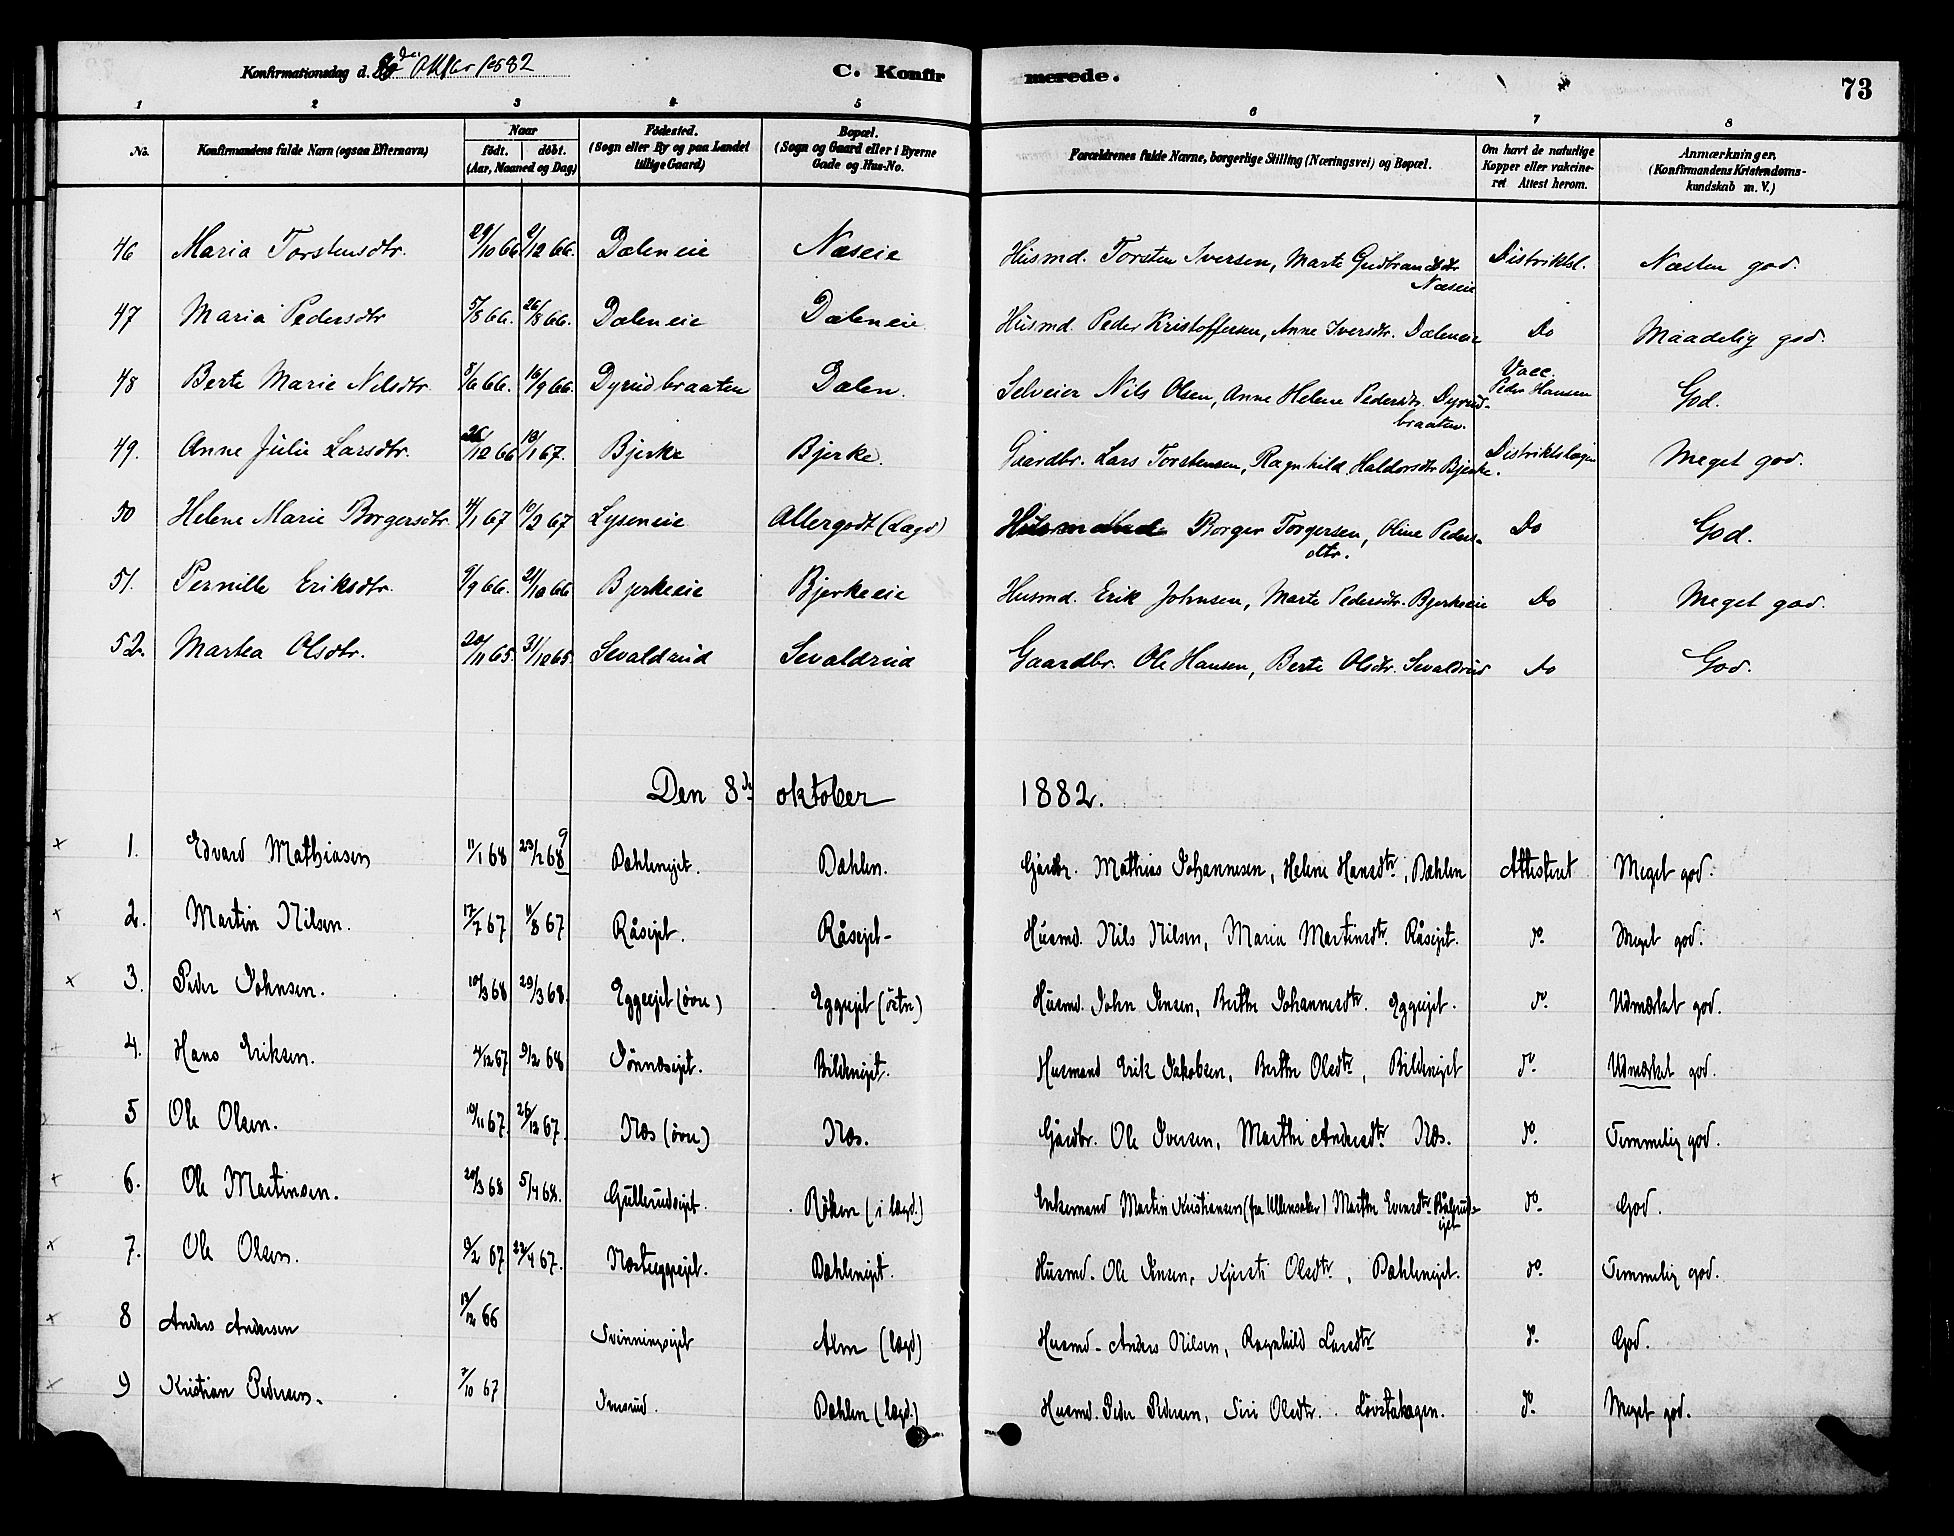 Konfirmationsdag d. 8de Oktbr 1882
C. Konfirmerede.
73
1 2 3 4 5 6 7 8
No. Konfirmandens fulde Navn (ogsaa Efternavn) Naar født. døbt. (Aar, Maaned og Dag) Fødested. (Sogn eller By og paa Landet tillige Gaard) Bopæl. (Sogn og Gaard eller i Byerne Gade og Hus-No. Forældrenes fulde Navne, borgerlige Stilling (Næringsvei) og Bopæl. Om havt de naturlige Kopper eller vakcineret Attest herom. Anmærkninger. (Konfirmandens Kristendomskundskab m. V.)
46 Maria Torstensdtr. 29/10 66 9/12 66. Dæleneie Næseie Husmd. Torsten Iversen, Marte Gudbrandsdtr Næseie Distriktsl. Næsten god.
47 Maria Pedersdtr 5/8 66. 26/8 66. Dæleneie Dæleneie Husmd. Peder Kristoffersen, Anne Iversdtr. Dæleneie Do Maadelig god.
48 Berte Marie Nilsdtr. 8/6 66. 16/9 66. Dyrudbraaten Dælen. Selveier Nils Olsen, Anne Helene Pedersdtr. Dyrudbraaten. Vacc. Peder Hansen God.
49. Anne Julie Larsdtr. 26/12 66 13/1 67. Bjerke Bjerke. Gaardbr. Lars Torstensen, Ragnhild Haldorsdtr Bjerke. Distriktslægen Meget god.
50 Helene Marie Borgersdtr. 4/1 67 10/2 67 Lyseneie Allergodt (Lægd) Borger Torgersen, Oline Pedersdtr. Do God.
51. Pernille Eriksdtr. 9/9 66. 21/10 66 Bjerkeeie Bjerkeeie Husmd. Erik Johnsen, Marte Pedersdtr. Bjerkeeie Do Meget god.
52. Marthea Olsdtr. 20/11 65. 31/12 65. Sevaldrud Sevaldrud Gaardbr. Ole Hansen, Berte Olsdtr. Sevaldrud Do God.
Den 8de oktober 1882.
1. Edvard Mathiasen 11/1 68 23/2 68 Dæhlenejet. Dæhlen. Gårdbr. Mathias Johannesen, Helene Hansdtr, Dæhlen Attesteret Meget god.
2. Martin Nilsen. 17/7 67 11/8 67 Råsejet. Råsejet- Husmd. Nils Nilsen, Maria Martinsdtr. Råsejet. do. Meget god.
3. Peder Johnsen. 10/3 68 29/3 68. Eggeejet (övre) Eggejet (östre) Husmd. John Jensen, Berthe Johannesdtr. Eggejet. do. Udmærket god.
4. Hans Eriksen. 4/12 67 9/2 68 Tönnæsejet. Bildenejet. Husmand Erik Jakobsen, Berthe Olsdtr, Bildenejet do. Udmærket god.
5 Ole Olsen. 10/11 67. 26/12 67. Næs (övre) Næs. Gårdbr. Ole Iversen, Marthe Andersdtr Næs. do. Temmelig god.
6. Ole Martinsen. 20/3 68 5/4 68. Gullerudsejet. Röken (i lægd.) Enkemand Martin Kristiansen (fra Ullensaker) Marthe Evensdtr do. God.
7. Ole Olsen. 18/2 67 22/4 67. Næsteggejet. Dæhlenejet. Husmd. Ole Jensen, Kjersti Olsdtr, Dæhlenejet. do. Temmelig god.
8 Anders Andersen 13/12 66 Svinningsejet Alm (lægd) Husmd. Anders Nilsen, Ragnhild Larsdtr do. God.
9 Kristian Pedersen. 2/10 67 Dæhlen (lægd.) Husmd. Peder Pedersen, Siri Olsdtr. Lövstahagen. do. Meget god.